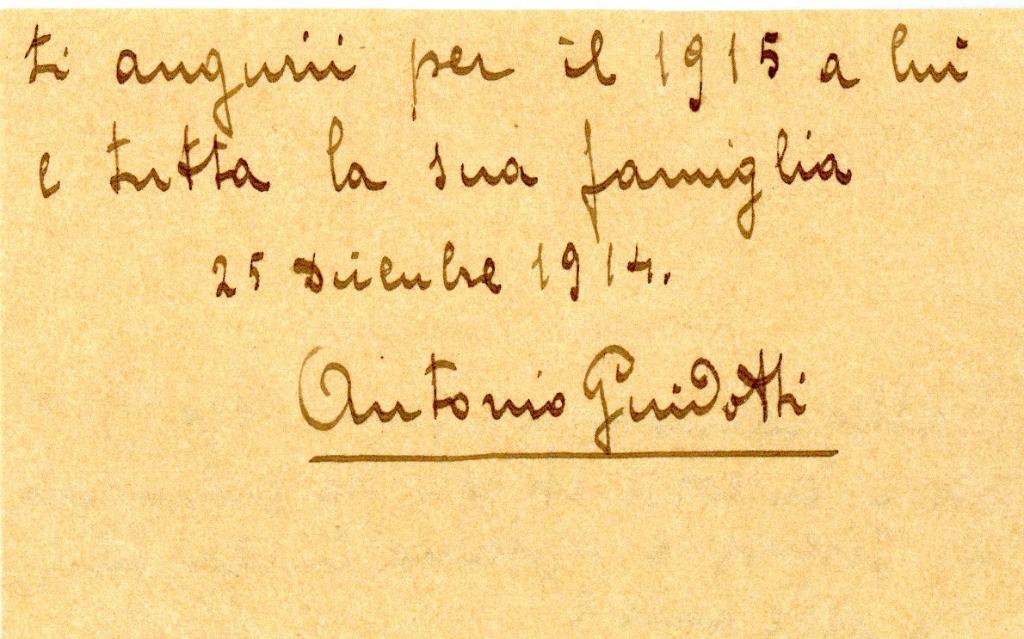 ti augurii per il 1915 a lui
e tutta la sua famiglia
25 Dicembre 1914.
Antonio Guidotti